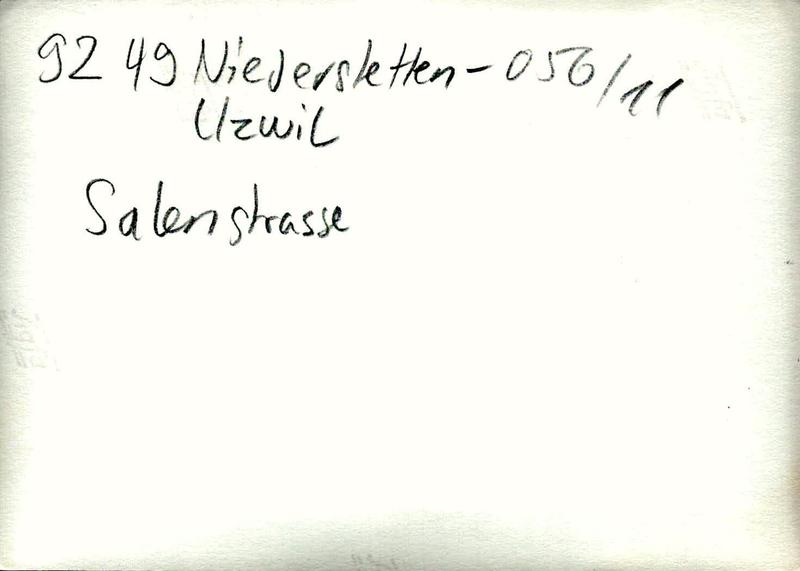 9249 Niederstetten - 050/11
Uzwil
Salenstrasse